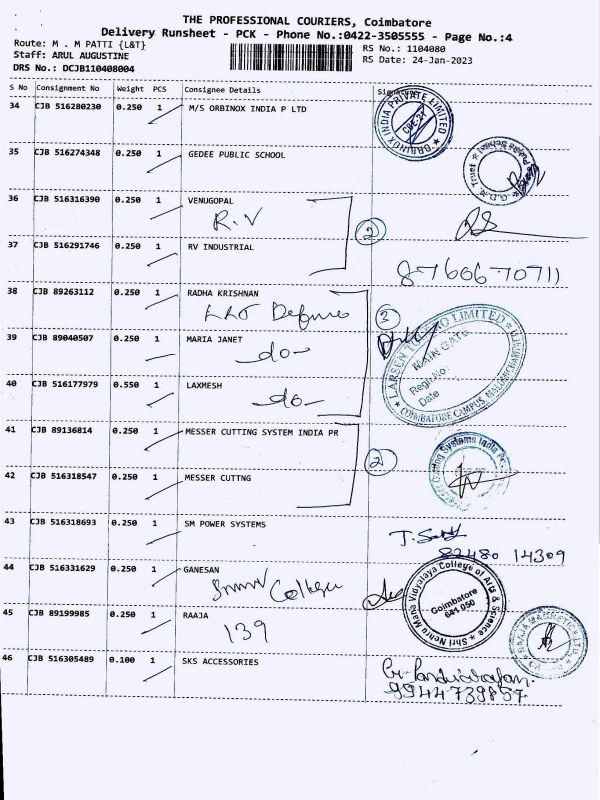 THE PROFESSIONAL COURIERS, Coimbatore
Delivery Runsheet - PCK - Phone No.:0422-3505555 - Page No.:4
Route: M . M PATTI {L&T}
RS No.: 1104080
Staff: ARUL AUGUSTINE
RS Date: 24-Jan-2023
DRS No.: DCJB110408004
S No Consignment No Weight PCS Consignee Details Signature
34 CJB 516280230 0.250 1 M/S ORBINOX INDIA P LTD
ORBINOX INDIA PRIVATE LIMITED
CBE-21
35 CJB 516274348 0.250 1 GEDEE PUBLIC SCHOOL
G.D. Trust
36 CJB 516316390 0.250 1 VENUGOPAL
R.V
2
37 CJB 516291746 0.250 1 RV INDUSTRIAL
8760670711
38 CJB 89263112 0.250 1 RADHA KRISHNAN
L&T Defence
3
39 CJB 89040507 0.250 1 MARIA JANET
-do-
LARSEN TOUBRO LIMITED
MAIN GATE
Regn.No:
Date
COIMBATORE CAMPUS, MALUMICHAMPATTI
40 CJB 516177979 0.550 1 LAXMESH
-do-
41 CJB 89136814 0.250 1 MESSER CUTTING SYSTEM INDIA PR
2
Cutting Systems India
42 CJB 516318547 0.250 1 MESSER CUTTNG
43 CJB 516318693 0.250 1 SM POWER SYSTEMS
82480 14309
44 CJB 516331629 0.250 1 GANESAN
College
Shri Nehru Maha Vidyalaya College of Arts & Science
Coimbatore
641 050
45 CJB 89199985 0.250 1 RAAJA
139
RAAJA MAGNETICS LTD
46 CJB 516305489 0.100 1 SKS ACCESSORIES
9944739857